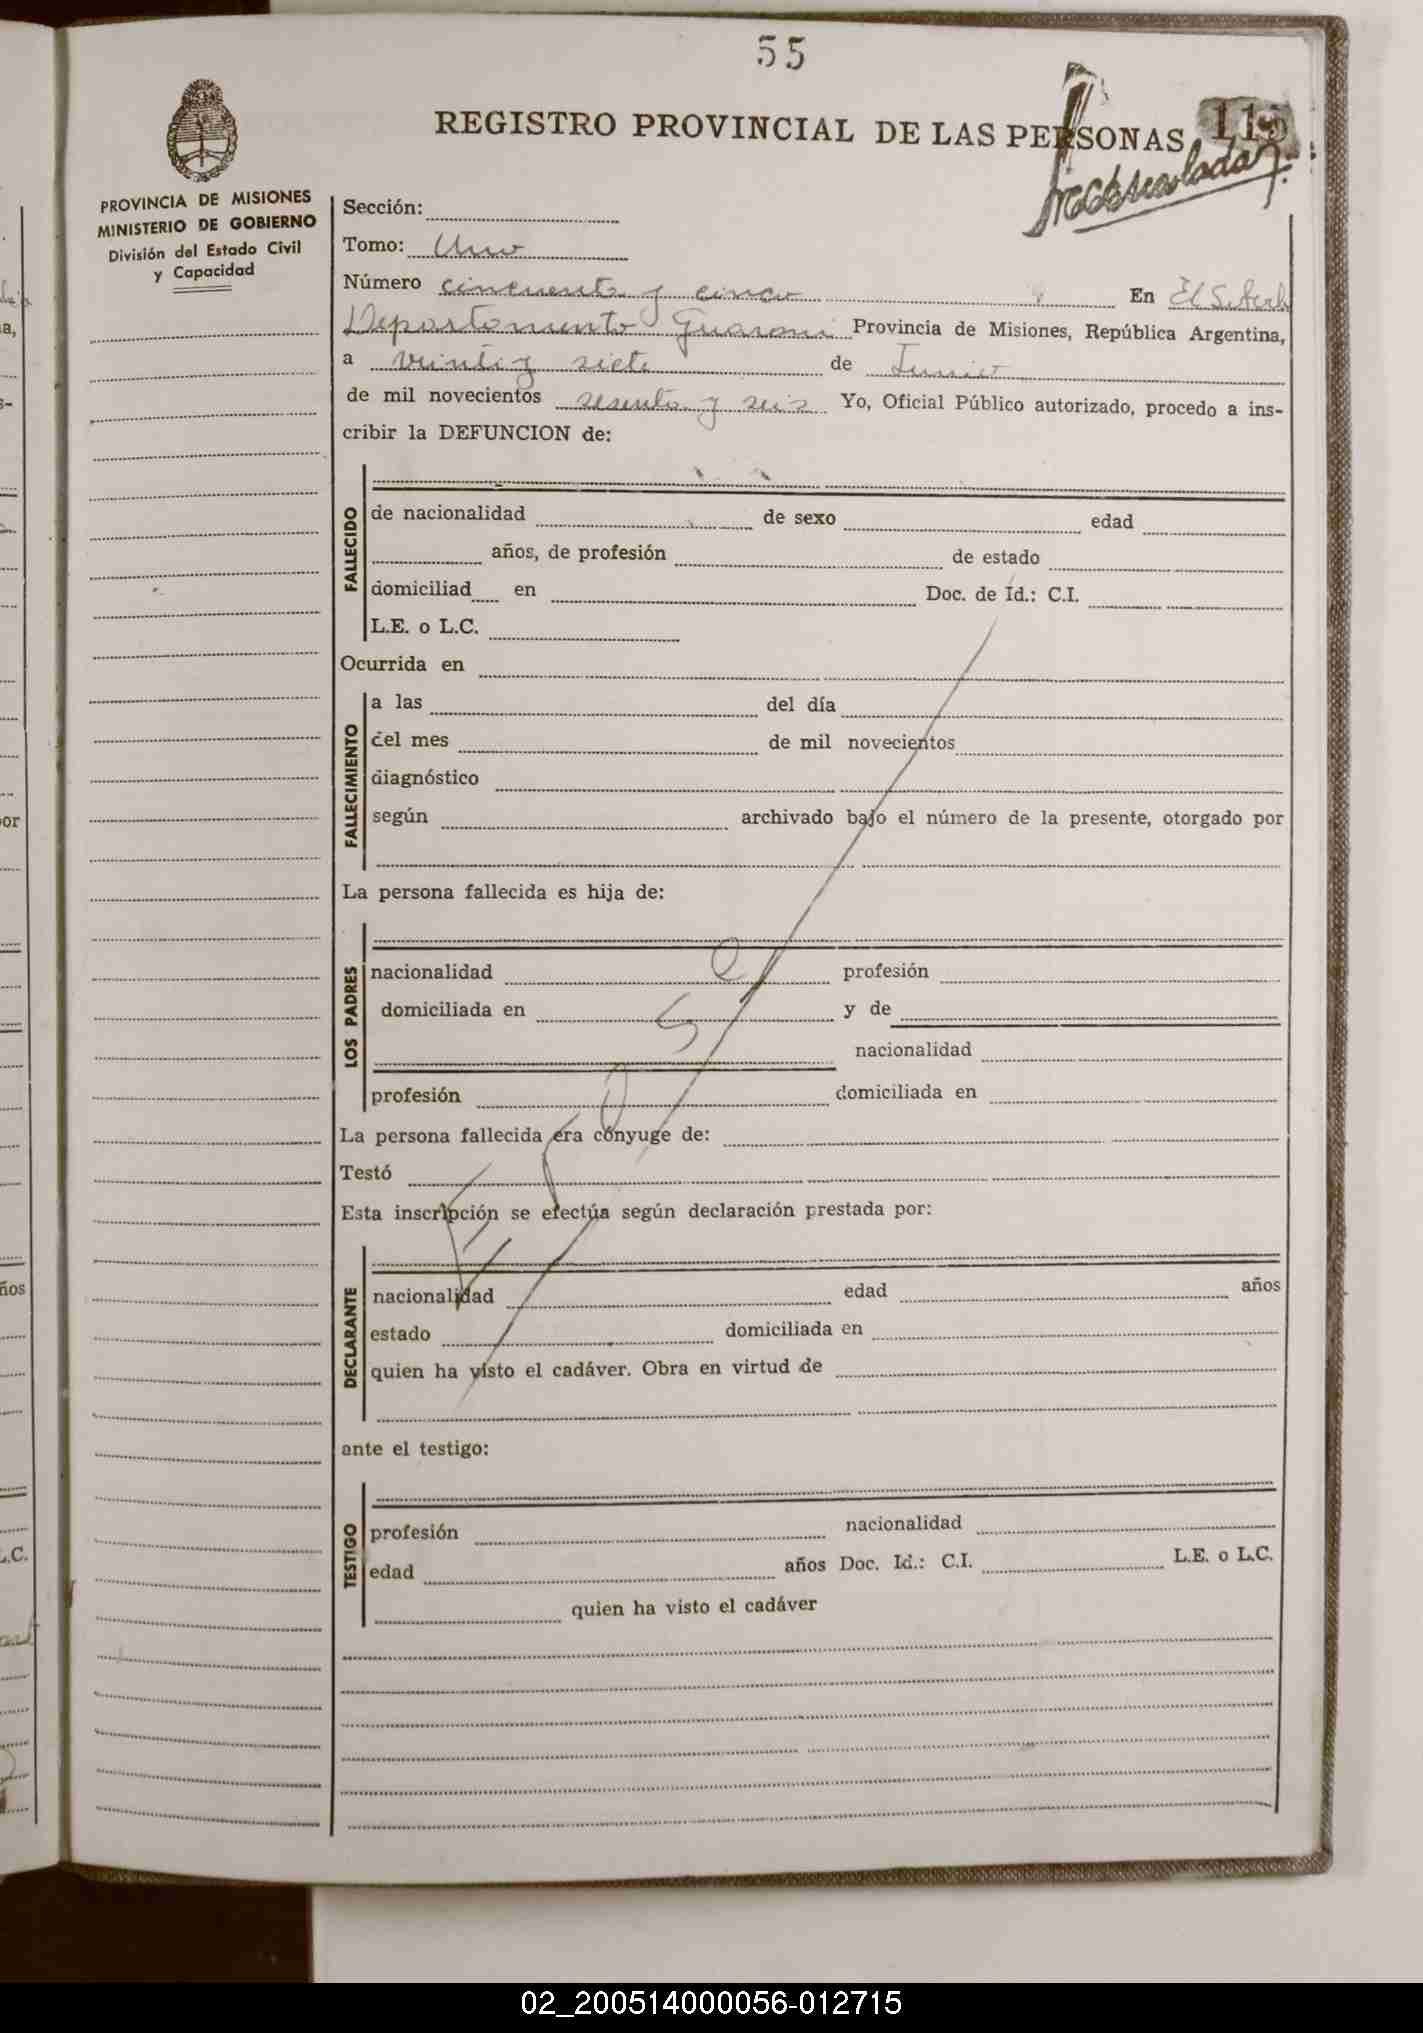 55
REGISTRO PROVINCIAL DE LAS PERSONAS
PROVINCIA DE MISIONES
MINISTERIO DE GOBIERNO
División del Estado Civil
y Capacidad
Sección:
Tomo: Uno
Número cincuenta y cinco En El
Departamento Guarani Provincia de Misiones, República Argentina,
a veinte y siete de Junio
de mil novecientos sesenta y seis Yo, Oficial Público autorizado, procedo a ins-
cribir la DEFUNCION de:
FALLECIDO
de nacionalidad de sexo edad
años, de profesión de estado
domiciliad en Doc. de Id.: C.I.
L.E. o L.C.
Ocurrida en
FALLECIMIENTO
a las del día
del mes de mil novecientos
diagnóstico
según archivado bajo el número de la presente, otorgado por
La persona fallecida es hija de:
LOS PADRES
nacionalidad profesión
domiciliada en y de
nacionalidad
profesión domiciliada en
La persona fallecida era cónyuge de:
Testó
Esta inscripción se efectúa según declaración prestada por:
DECLARANTE
nacionalidad edad años
estado domiciliada en
quien ha visto el cadáver. Obra en virtud de
ante el testigo:
TESTIGO
profesión nacionalidad
edad años Doc. Id.: C.I. L.E. o L.C.
quien ha visto el cadáver
02_200514000056-012715